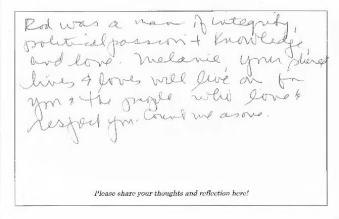 Rod was a man of integrity,
political passion + knowledge,
and love. Melanie, your shared
lives & loves will live on for
you & the people who love &
respect you. Count me as one.
Please share your thoughts and reflection here!